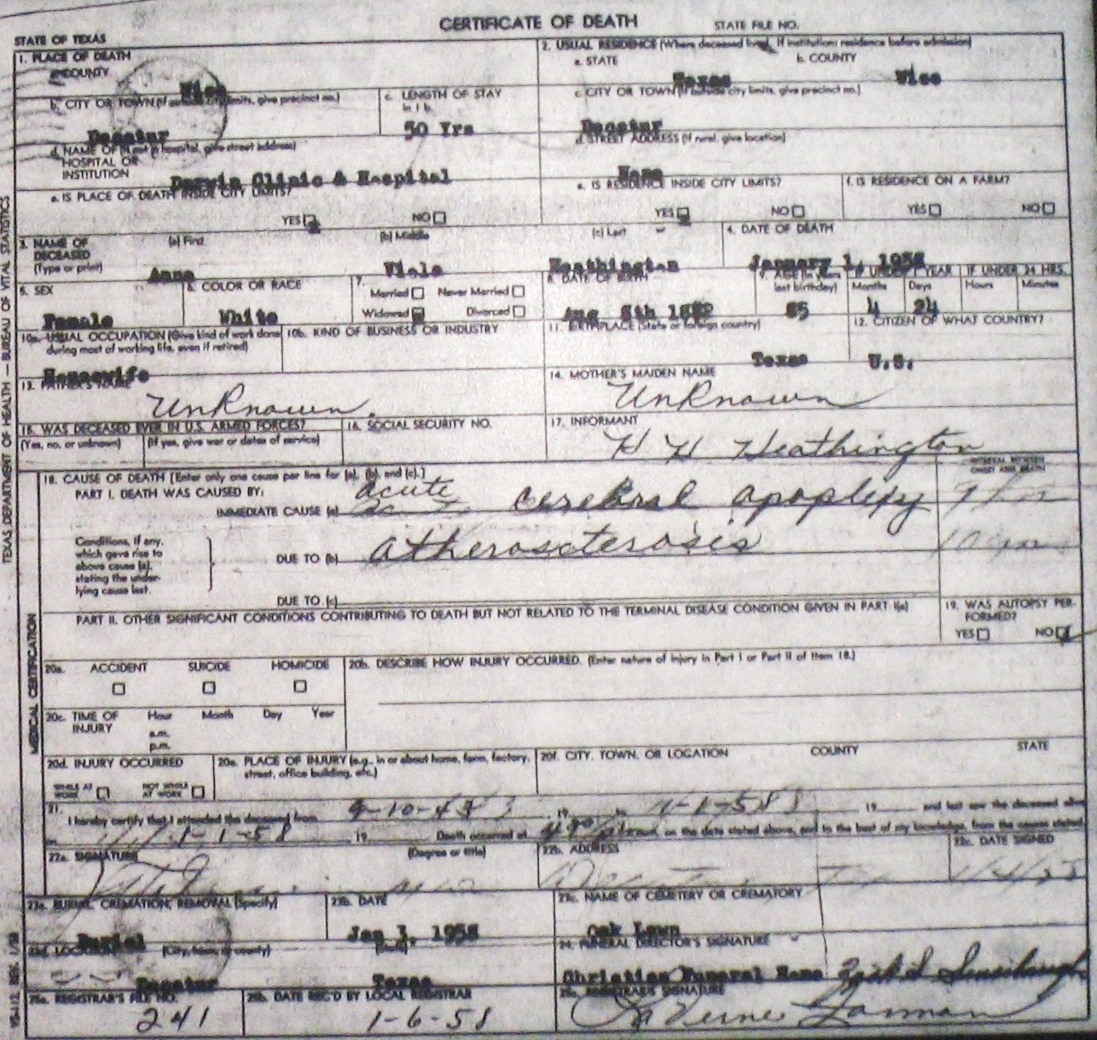 CERTIFICATE OF DEATH STATE FILE NO.
STATE OF TEXAS
1. PLACE OF DEATH
a. COUNTY
Wise
2. USUAL RESIDENCE (Where deceased lived. If institution: residence before admission)
a. STATE b. COUNTY
Texas Wise
b. CITY OR TOWN (If outside city limits, give precinct no.)
Decatur
c. LENGTH OF STAY
in 1 b.
50 Yrs
c. CITY OR TOWN (If outside city limits, give precinct no.)
Decatur
d. NAME OF (If not in hospital, give street address)
HOSPITAL OR
INSTITUTION
Parvin Clinic & Hospital
d. STREET ADDRESS (If rural, give location)
Home
e. IS PLACE OF DEATH INSIDE CITY LIMITS?
YES NO
e. IS RESIDENCE INSIDE CITY LIMITS?
YES NO
f. IS RESIDENCE ON A FARM?
YES NO
3. NAME OF
DECEASED
(Type or print)
(a) First (b) Middle (c) Last
Anna Viola Heathington
4. DATE OF DEATH
January 1, 1958
5. SEX
Female
6. COLOR OR RACE
White
7.
Married Never Married
Widowed Divorced
8. DATE OF BIRTH
Aug 8th
9. AGE (In years
last birthday)
85
IF UNDER 1 YEAR
Months Days
4 24
IF UNDER 24 HRS.
Hours Minutes
10a. USUAL OCCUPATION (Give kind of work done
during most of working life, even if retired)
Housewife
10b. KIND OF BUSINESS OR INDUSTRY
11. BIRTHPLACE (State or foreign country)
Texas
12. CITIZEN OF WHAT COUNTRY?
U.S.
13. FATHER'S NAME
UnKnown.
14. MOTHER'S MAIDEN NAME
UnKnown
15. WAS DECEASED EVER IN U.S. ARMED FORCES?
(Yes, no, or unknown) (If yes, give war or dates of service)
16. SOCIAL SECURITY NO.
17. INFORMANT
H H Heathington
18. CAUSE OF DEATH [Enter only one cause per line for (a), (b), and (c).]
INTERVAL BETWEEN
ONSET AND DEATH
PART I. DEATH WAS CAUSED BY:
IMMEDIATE CAUSE (a) acute cerebral apoplexy
Conditions, if any,
which gave rise to
above cause (a),
stating the under-
lying cause last.
DUE TO (b) atherosclerosis
DUE TO (c)
PART II. OTHER SIGNIFICANT CONDITIONS CONTRIBUTING TO DEATH BUT NOT RELATED TO THE TERMINAL DISEASE CONDITION GIVEN IN PART I(a)
19. WAS AUTOPSY PER-
FORMED?
YES NO
MEDICAL CERTIFICATION
TEXAS DEPARTMENT OF HEALTH — BUREAU OF VITAL STATISTICS
20a. ACCIDENT SUICIDE HOMICIDE
20b. DESCRIBE HOW INJURY OCCURRED. (Enter nature of injury in Part I or Part II of Item 18.)
20c. TIME OF
INJURY
Hour Month Day Year
a.m.
p.m.
20d. INJURY OCCURRED
WHILE AT
WORK
NOT WHILE
AT WORK
20e. PLACE OF INJURY (e.g., in or about home, farm, factory,
street, office building, etc.)
20f. CITY, TOWN, OR LOCATION COUNTY STATE
21.
I hereby certify that I attended the deceased from 19 to 1-1-58 19 and last saw the deceased alive
on 1-1-58 19 Death occurred at on the date stated above, and to the best of my knowledge, from the causes stated.
22a. SIGNATURE (Degree or title)
22b. ADDRESS
22c. DATE SIGNED
23a. BURIAL, CREMATION, REMOVAL (Specify)
Burial
23b. DATE
Jan 3, 1958
23c. NAME OF CEMETERY OR CREMATORY
Oak Lawn
23d. LOCATION (City, town, or county) (State)
Decatur Texas
24. FUNERAL DIRECTOR'S SIGNATURE
Christian Funeral Home
25a. REGISTRAR'S FILE NO.
241
25b. DATE REC'D BY LOCAL REGISTRAR
1-6-58
25c. REGISTRAR'S SIGNATURE
LaVerne